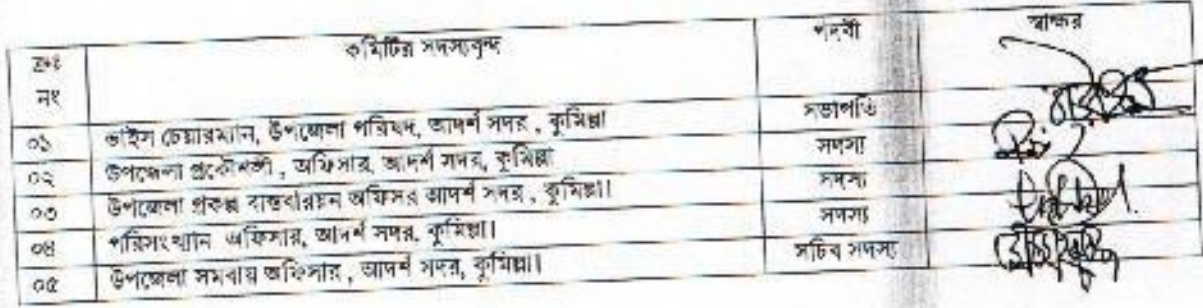 ক্রঃ নং কমিটির সদস্যবৃন্দ পদবী স্বাক্ষর
০১ ভাইস চেয়ারম্যান, উপজেলা পরিষদ, আদর্শ সদর , কুমিল্লা সভাপতি
০২ উপজেলা প্রকৌশলী , অফিসার, আদর্শ সদর, কুমিল্লা সদস্য
০৩ উপজেলা প্রকল্প বাস্তবায়ন অফিসর আদর্শ সদর , কুমিল্লা। সদস্য
০৪ পরিসংখ্যান অফিসার, আদর্শ সদর, কুমিল্লা। সদস্য
০৫ উপজেলা সমবায় অফিসার , আদর্শ সদর, কুমিল্লা। সচিব সদস্য